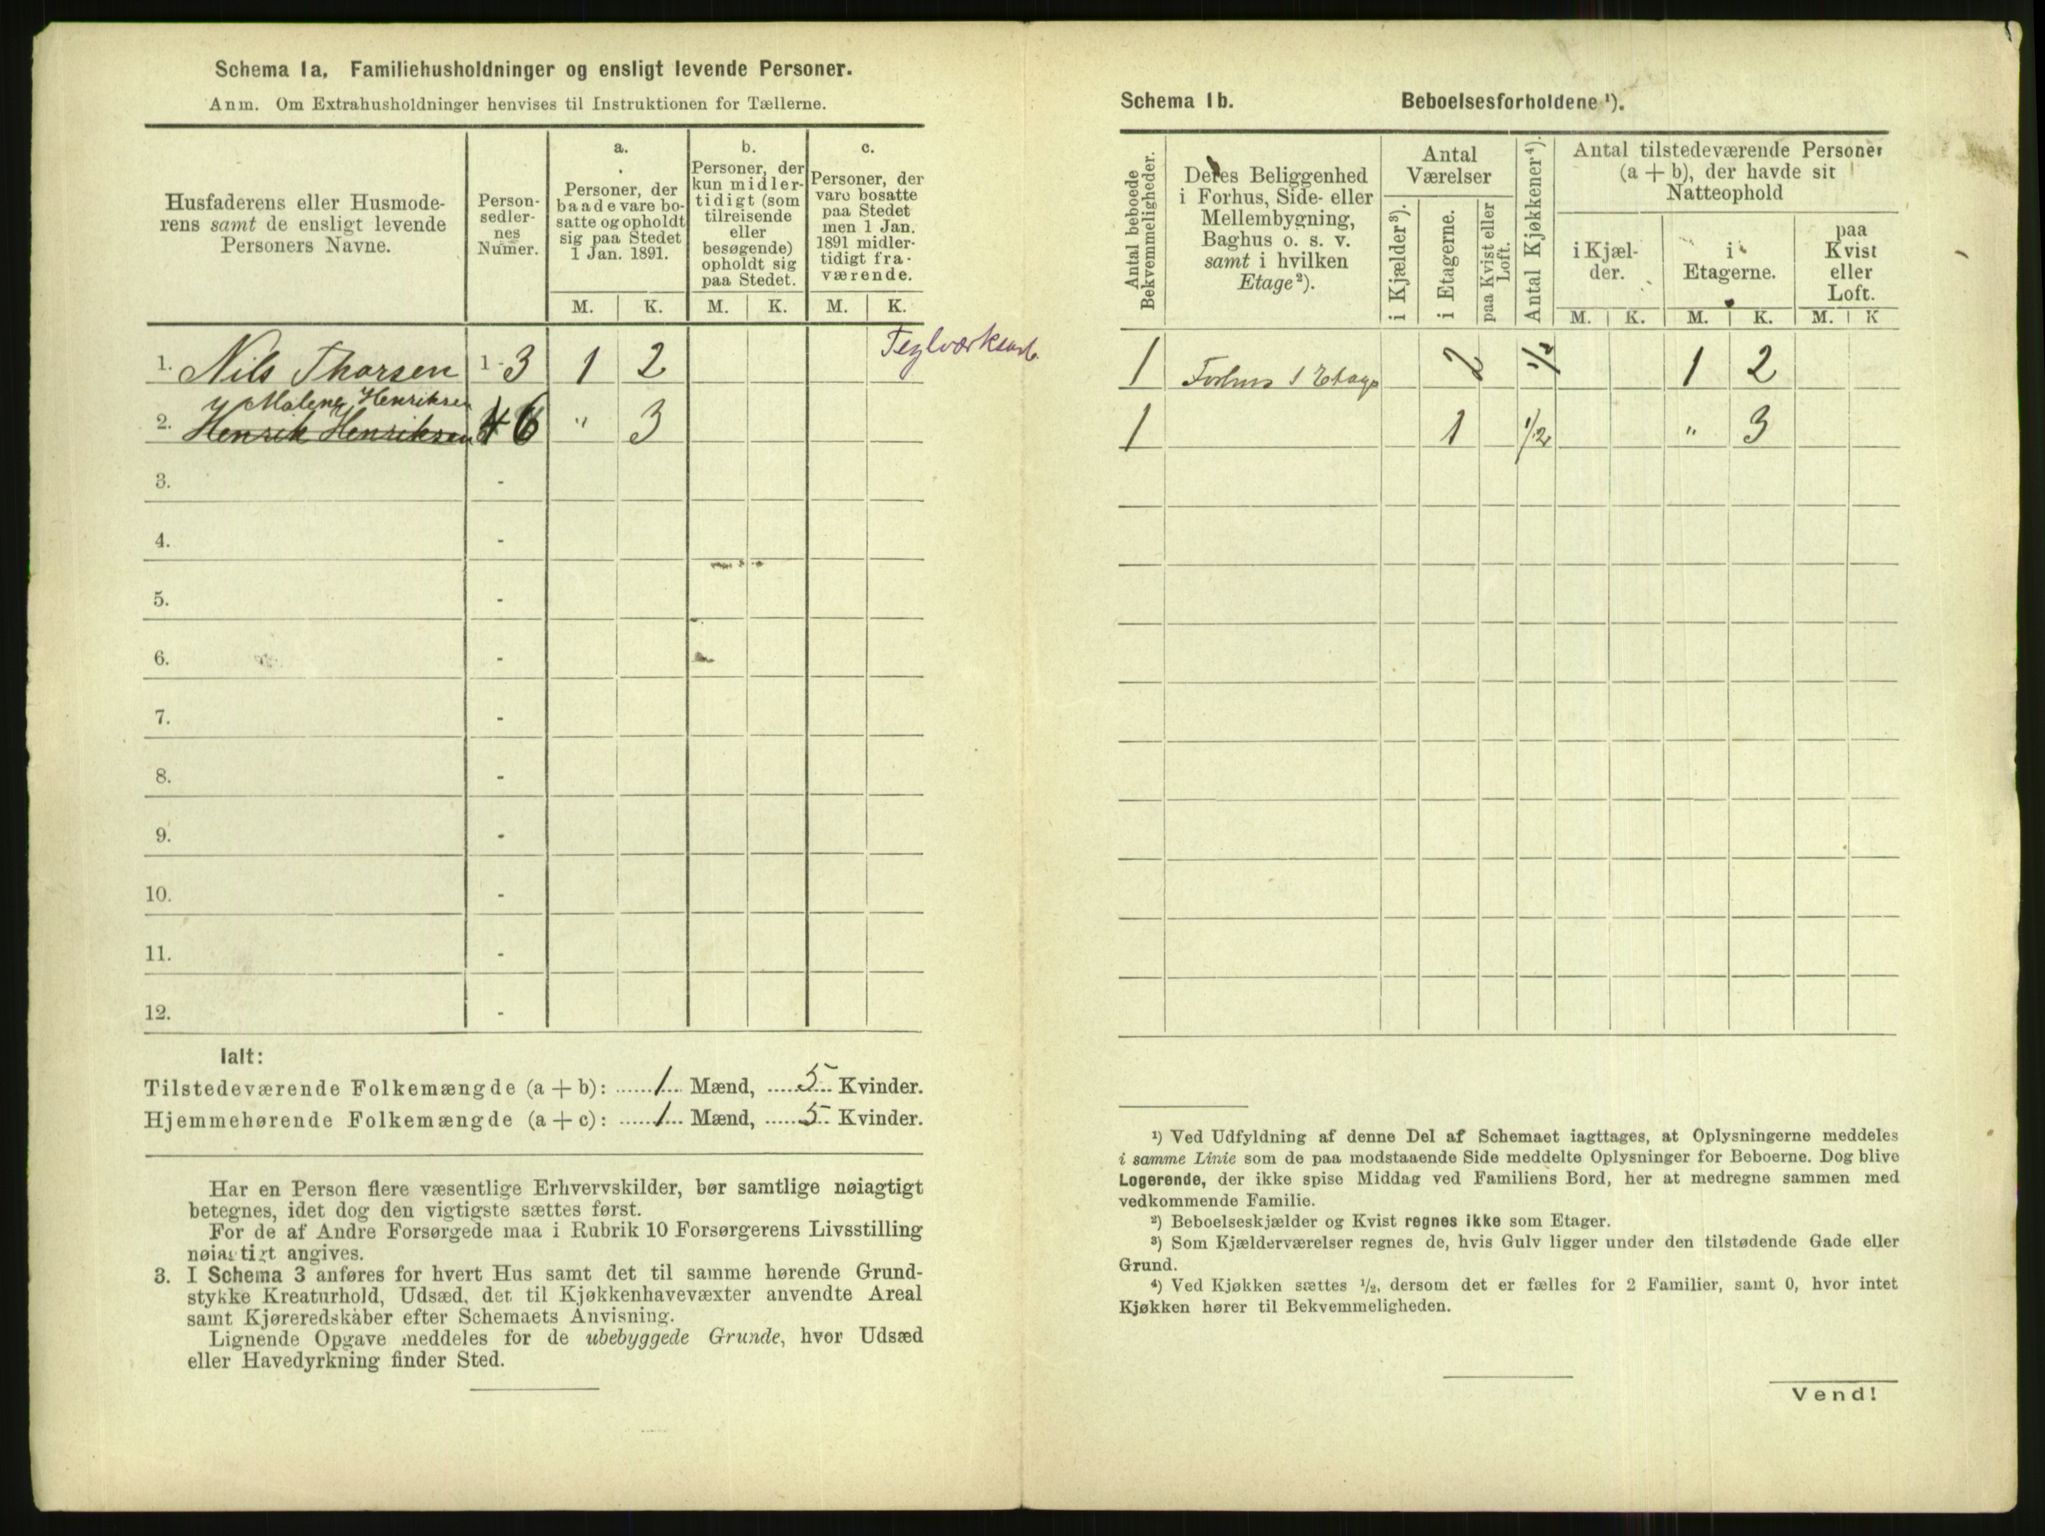 Schema 1a. Familiehusholdninger og ensligt levende Personer.
Anm. Om Extrahusholdninger henvises til Instruktionen for Tællerne.
Husfaderens eller Husmode-
rens samt de ensligt levende
Personers Navne.
Person-
sedler-
nes
Numer.
a.
Personer, der
baade vare bo-
satte og opholdt
sig paa Stedet
1 Jan. 1891.
b.
Personer, der
kun midler-
tidigt (som
tilreisende
eller
besøgende)
opholdt sig
paa Stedet.
c.
Personer, der
vare bosatte
paa Stedet
men 1 Jan.
1891 midler-
tidigt fra-
værende.
M. K. M. K. M. K.
1. Nils Thorsen 1 - 3 1 2 Teglværksarb.
Malene Henriksen
2. Henrik Henriksen 4 6 " 3
3. -
4. -
5. -
6. -
7. -
8. -
9. -
10. -
11. -
12. -
Ialt:
Tilstedeværende Folkemængde (a + b): 1 Mænd, 5 Kvinder.
Hjemmehørende Folkemængde (a + c): 1 Mænd, 5 Kvinder.
Har en Person flere væsentlige Erhvervskilder, bør samtlige nøiagtigt
betegnes, idet dog den vigtigste sættes først.
For de af Andre Forsørgede maa i Rubrik 10 Forsørgerens Livsstilling
nøiagtigt angives.
3. I Schema 3 anføres for hvert Hus samt det til samme hørende Grund-
stykke Kreaturhold, Udsæd, det til Kjøkkenhavevæxter anvendte Areal
samt Kjøreredskaber efter Schemaets Anvisning.
Lignende Opgave meddeles for de ubebyggede Grunde, hvor Udsæd
eller Havedyrkning finder Sted.
Schema 1b. Beboelsesforholdene ¹).
Antal beboede
Bekvemmeligheder.
Deres Beliggenhed
i Forhus, Side- eller
Mellembygning,
Baghus o. s. v.
samt i hvilken
Etage²).
Antal
Værelser
i Kjælder³).
i Etagerne.
paa Kvist eller
Loft.
Antal Kjøkkener⁴).
Antal tilstedeværende Personer
(a + b), der havde sit
Natteophold
i Kjæl-
der.
i
Etagerne.
paa
Kvist
eller
Loft.
M. K. M. K. M. K
1 Forhus 1 Etage 2 1/2 1 2
1 1 1/2 " 3
¹) Ved Udfyldning af denne Del af Schemaet iagttages, at Oplysningerne meddeles
i samme Linie som de paa modstaaende Side meddelte Oplysninger for Beboerne. Dog blive
Logerende, der ikke spise Middag ved Familiens Bord, her at medregne sammen med
vedkommende Familie.
²) Beboelseskjælder og Kvist regnes ikke som Etager.
³) Som Kjælderværelser regnes de, hvis Gulv ligger under den tilstødende Gade eller
Grund.
⁴) Ved Kjøkken sættes ½, dersom det er fælles for 2 Familier, samt 0, hvor intet
Kjøkken hører til Bekvemmeligheden.
Vend!